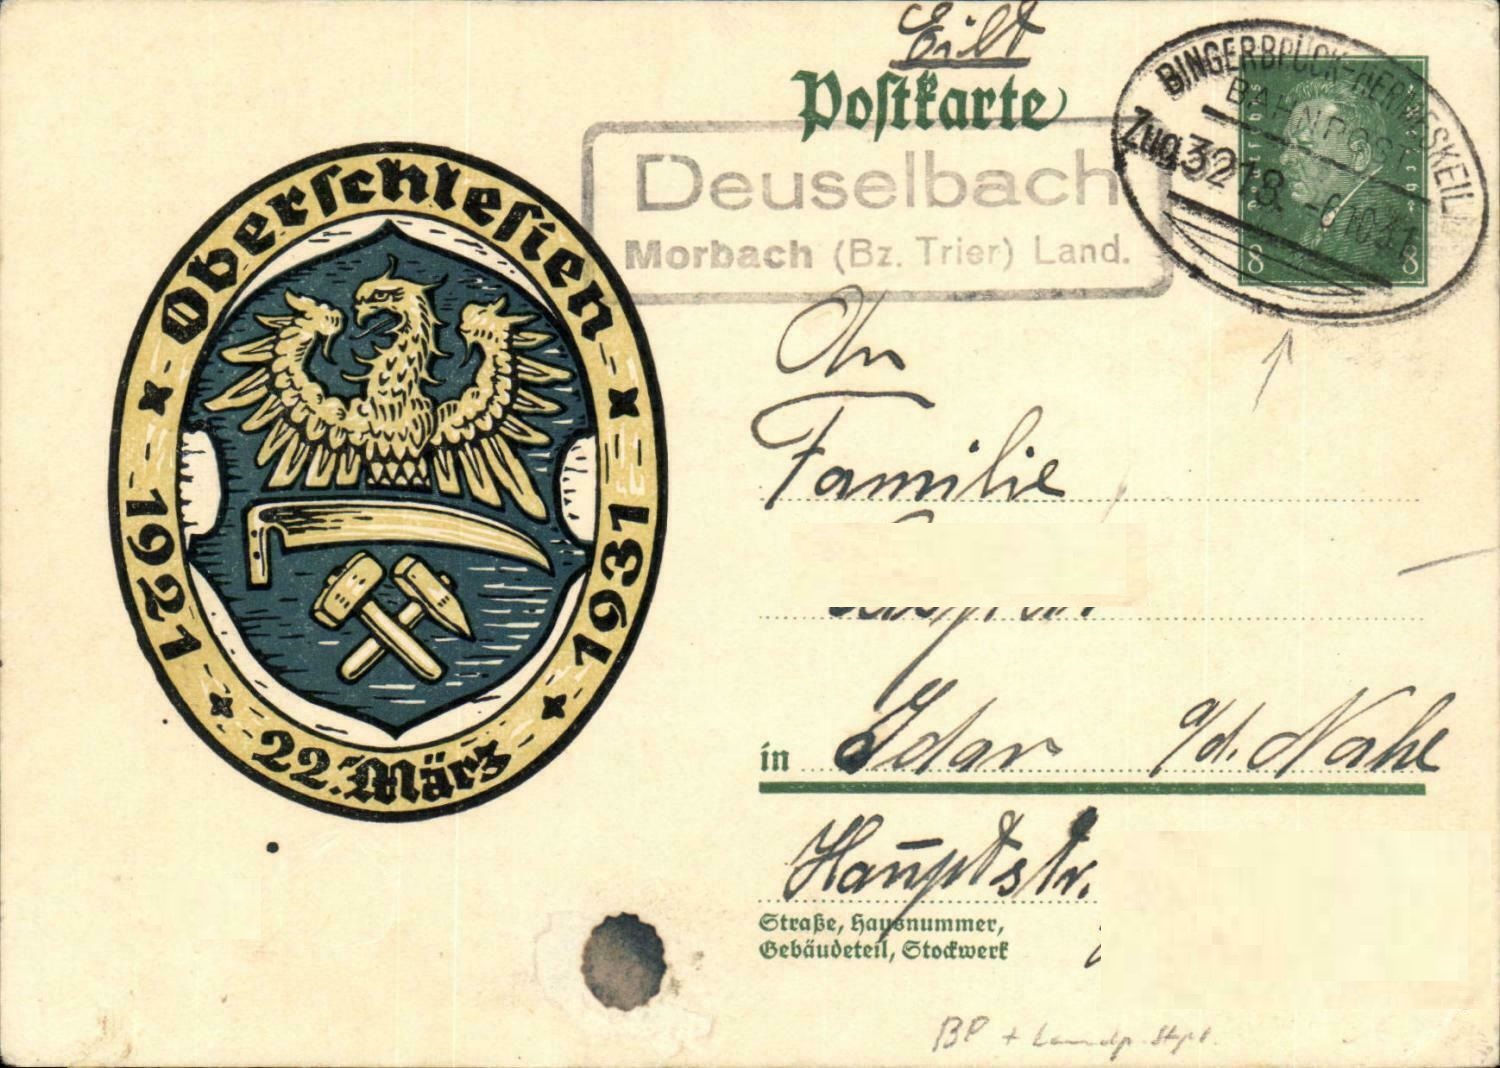 Eilt
Postkarte
Deuselbach
Morbach (Bz. Trier) Land.
BINGERBRÜCK-HERMESKEIL
BAHNPOST
Zug 3218. -6.10.31
8 8
Oberschlesien
1921 1931
22. März
An
Familie
in Idar a/d. Nahe
Hauptstr.
Straße, Hausnummer,
Gebäudeteil, Stockwerk
BP + Landp. Stpl.